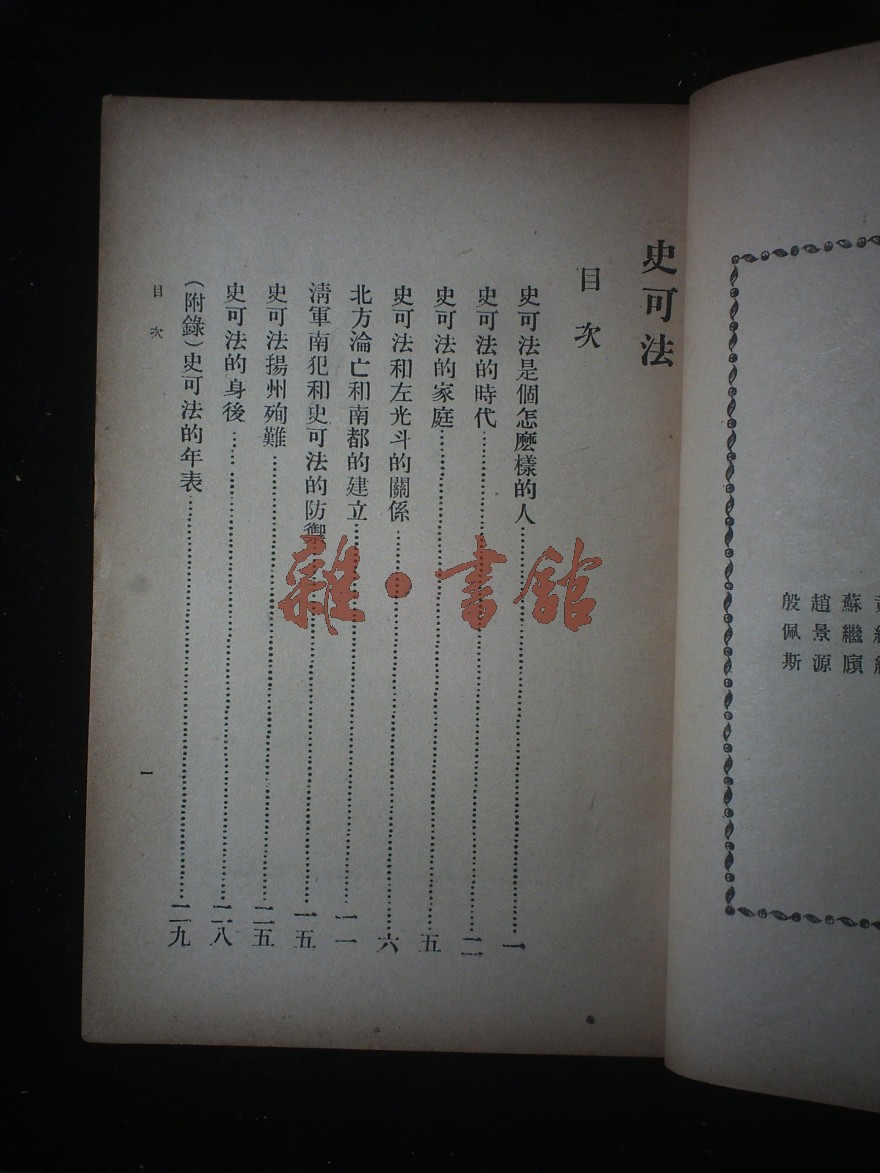 蘇繼廎
趙景源
殷佩斯
史可法
目次
史可法是個怎麼樣的人……一
史可法的時代……二
史可法的家庭……五
史可法和左光斗的關係……六
北方淪亡和南都的建立……一一
清軍南犯和史可法的防禦……一五
史可法揚州殉難……二五
史可法的身後……二八
(附錄)史可法的年表……二九
目次
一
雜·書館